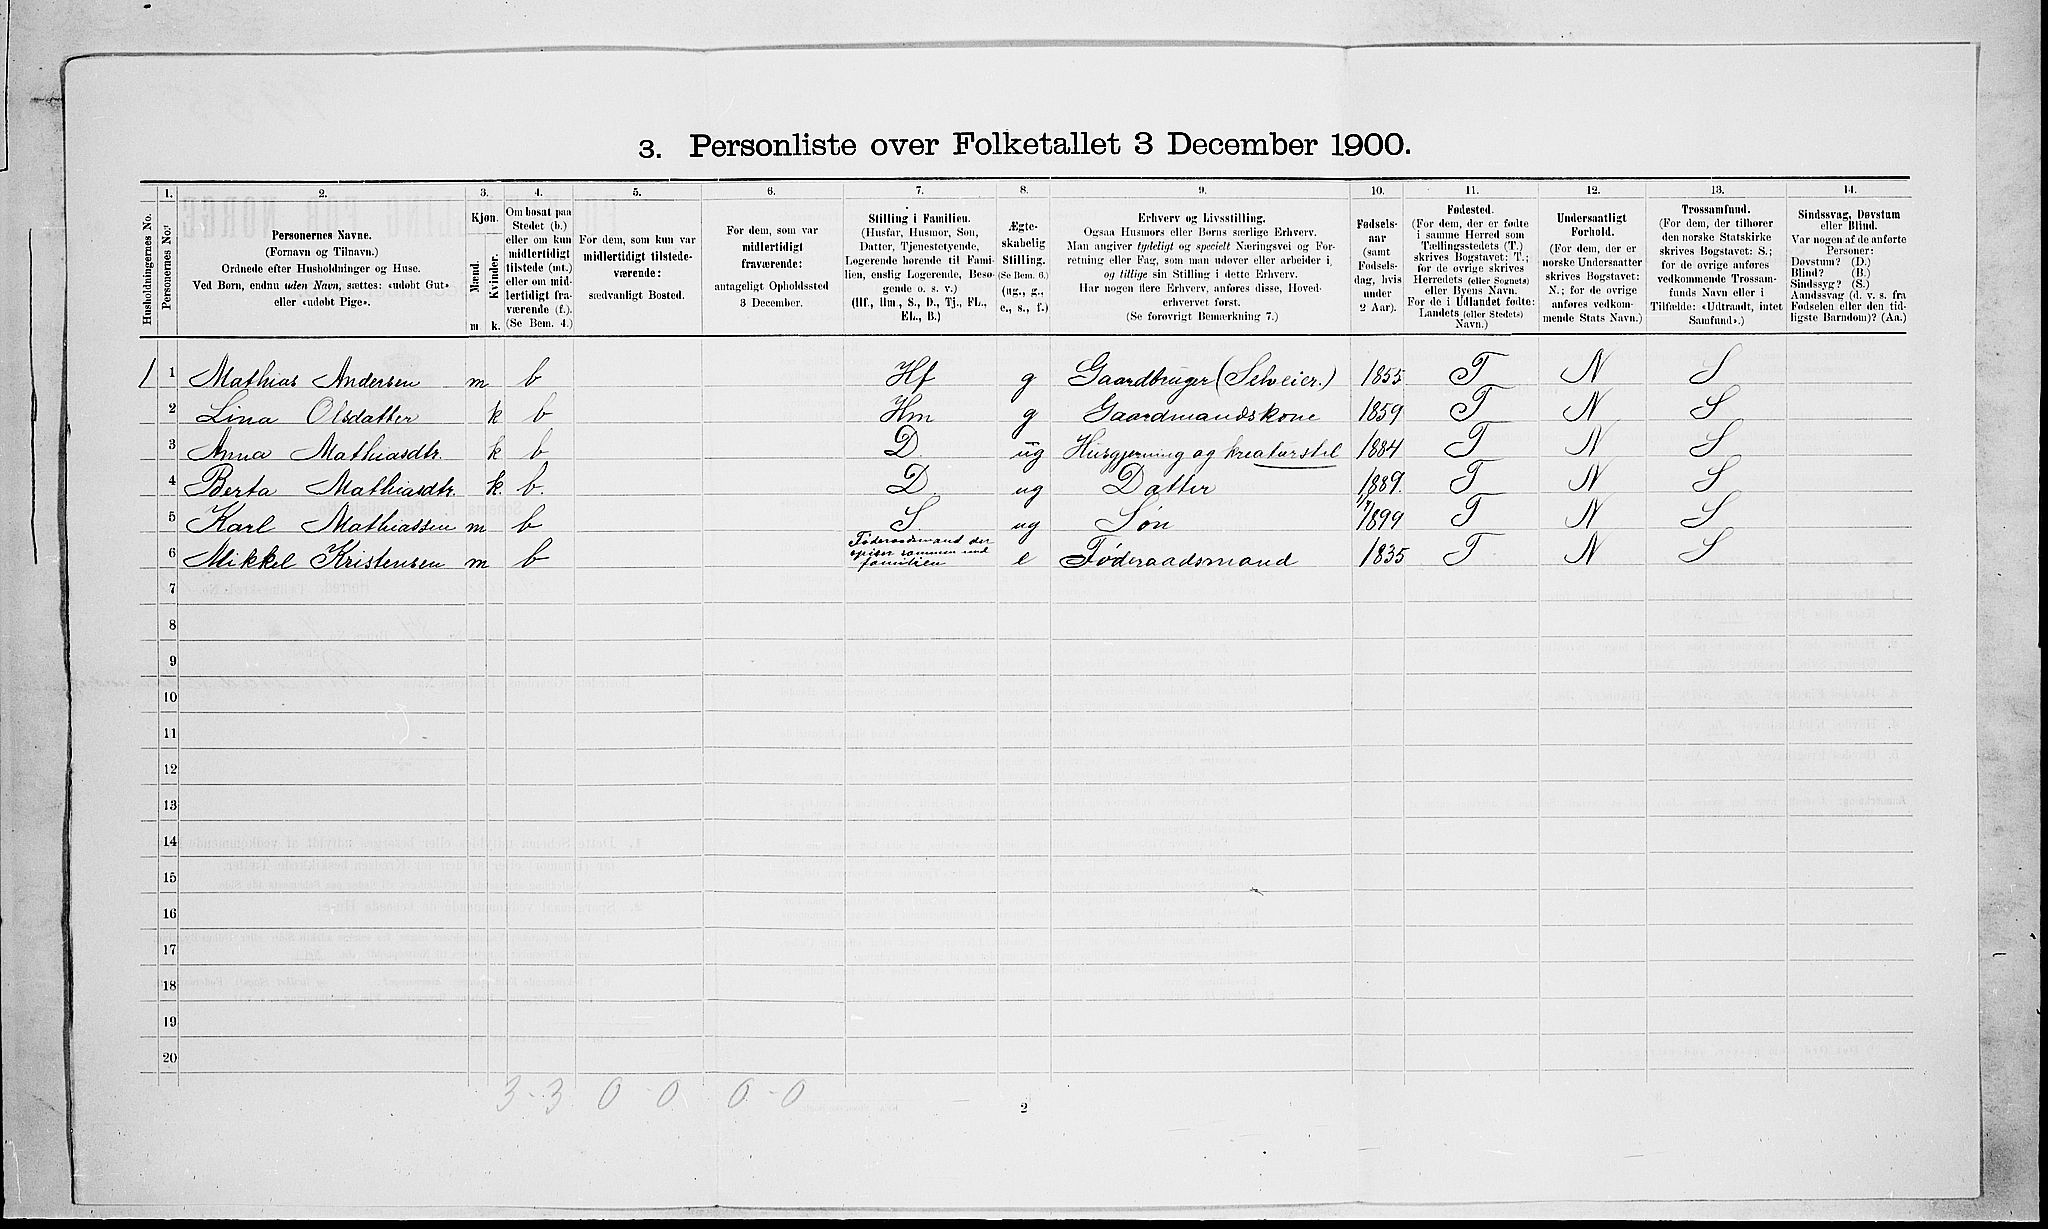 3. Personliste over Folketallet 3 December 1900.
1. 2. 3. 4. 5. 6. 7. 8. 9. 10. 11. 12. 13. 14.
Husholdningernes No.
Personernes No.
Personernes Navne.
(Fornavn og Tilnavn.)
Ordnede efter Husholdninger og Huse.
Ved Børn, endnu uden Navn, sættes: «udøbt Gut»
eller «udøbt Pige».
Kjøn.
Mænd.
Kvinder.
m k.
Om bosat paa
Stedet (b.)
eller om kun
midlertidigt
tilstede (mt.)
eller om mid-
lertidigt fra-
værende (f.).
(Se Bem. 4.)
For dem, som kun var
midlertidigt tilstede-
værende:
sædvanligt Bosted.
For dem, som var
midlertidigt
fraværende:
antageligt Opholdssted
3 December.
Stilling i Familien.
(Husfar, Husmor, Søn,
Datter, Tjenestetyende,
Logerende hørende til Fami-
lien, enslig Logerende, Besø-
gende o. s. v.)
(Hf, Hm, S., D., Tj., FL.,
EL., B.)
Ægte-
skabelig
Stilling.
(Se Bem. 6.)
(ug., g.,
e., s., f.)
Erhverv og Livsstilling.
Ogsaa Husmors eller Børns særlige Erhverv.
Man angiver tydeligt og specielt Næringsvei og For-
retning eller Fag, som man udøver eller arbeider i,
og tillige sin Stilling i dette Erhverv.
Har nogen flere Erhverv, anføres disse, Hoved-
erhvervet først.
(Se forøvrigt Bemærkning 7.)
Fødsels-
aar
(samt
Fødsels-
dag, hvis
under
2 Aar).
Fødested.
(For dem, der er fødte
i samme Herred som
Tællingsstedets (T.)
skrives Bogstavet: T.;
for de øvrige skrives
Herredets (eller Sognets)
eller Byens Navn.
For de i Udlandet fødte:
Landets (eller Stedets)
Navn.)
Undersaatligt
Forhold.
(For dem, der er
norske Undersaatter
skrives Bogstavet:
N.; for de øvrige
anføres vedkom-
mende Stats Navn.)
Trossamfund.
(For dem, der tilhører
den norske Statskirke
skrives Bogstavet: S.;
for de øvrige anføres
vedkommende Trossam-
funds Navn eller i
Tilfælde: «Udtraadt, intet
Samfund».)
Sindssvag, Døvstum
eller Blind.
Var nogen af de anførte
Personer:
Døvstum? (D.)
Blind? (B.)
Sindssyg? (S.)
Aandssvag (d. v. s. fra
Fødselen eller den tid-
ligste Barndom)? (Aa.)
1 1 Mathias Andersen m b Hf g Gaardbruger (Selveier.) 1855 T N S
2 Lina Olsdatter k b Hm g Gaardmandskone 1859 T N S
3 Anna Mathiasdtr. k b D ug Husgjerning og kreaturstel 1884 T N S
4 Berta Mathiasdtr. k. b. D. ug Datter 1889. T N S
5 Karl Mathiassen m b S. ug Søn 1899 T N S
6 Mikkel Kristensen m b Føderaadsmand der spiser sammen med familien e Føderaadsmand 1835 T N S
7
8
9
10
11
12
13
14
15
16
17
18
19
20
3-3 0-0 0-0
2